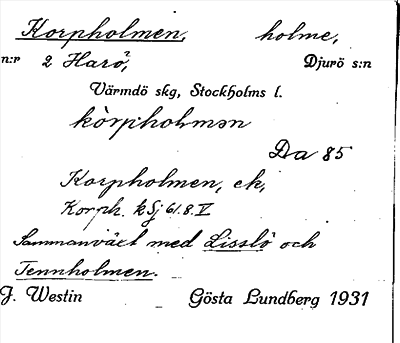 Korpholmen, holme,
n:r 2 Harö, Djurö s:n
Värmdö skg, Stockholms l.
kòrphohmən
Da 85
Korpholmen, ek,
Korph. kSj 61.8.V
Sammanväxt med Lisslö och
Tennholmen.
J. Westin Gösta Lundberg 1931